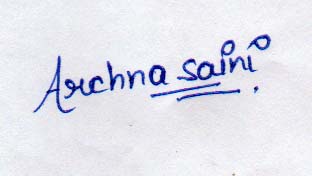 Archna saini